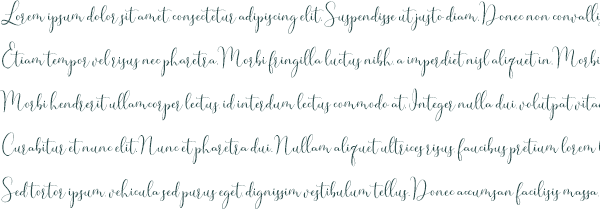 Lorem ipsum dolor sit amet, consectetur adipiscing elit. Suspendisse ut justo diam. Donec non convalli
Etiam tempor vel risus nec pharetra. Morbi fringilla luctus nibh, a imperdiet nisl aliquet in. Morbi
Morbi hendrerit ullamcorper lectus, id interdum lectus commodo at. Integer nulla dui, volutpat vitae
Curabitur et nunc elit. Nunc et pharetra dui. Nullam aliquet ultrices risus, faucibus pretium lorem
Sed tortor ipsum, vehicula sed purus eget, dignissim vestibulum tellus. Donec accumsan facilisis massa,